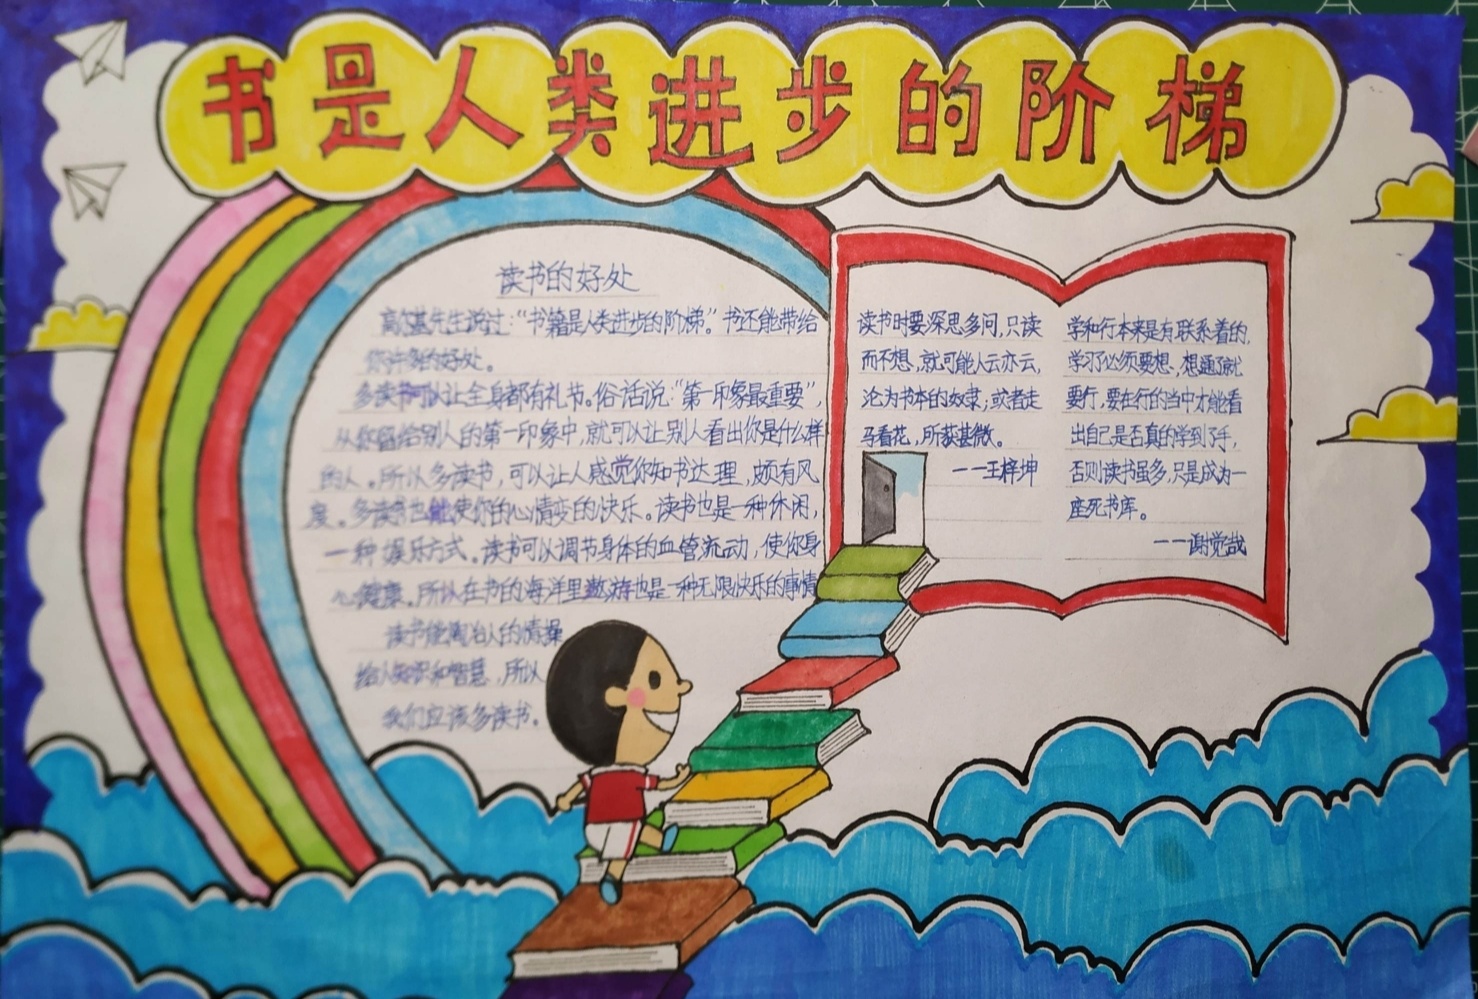 书是人类进步的阶梯
读书的好处
高尔基先生说过:“书籍是人类进步的阶梯。”书还能带给
你许多的好处。
多读书可以让全身都有礼节。俗话说:“第一印象最重要”,
从你留给别人的第一印象中,就可以让别人看出你是什么样
的人。所以多读书,可以让人感觉你知书达理,颇有风
度。多读书也能使你的心情变的快乐。读书也是一种休闲,
一种娱乐方式。读书可以调节身体的血管流动,使你身
心健康。所以在书的海洋里遨游也是一种无限快乐的事情
读书能陶冶人的情操
给人知识和智慧,所以
我们应该多读书。
读书时要深思多问,只读
而不想,就可能人云亦云,
沦为书本的奴隶;或者走
马看花,所获甚微。
——王梓坤
学和行本来是有联系着的,
学习必须要想,想通了就
要行,要在行的当中才能看
出自己是否真的学到了手,
否则读书虽多,只是成为一
座死书库。
——谢觉哉